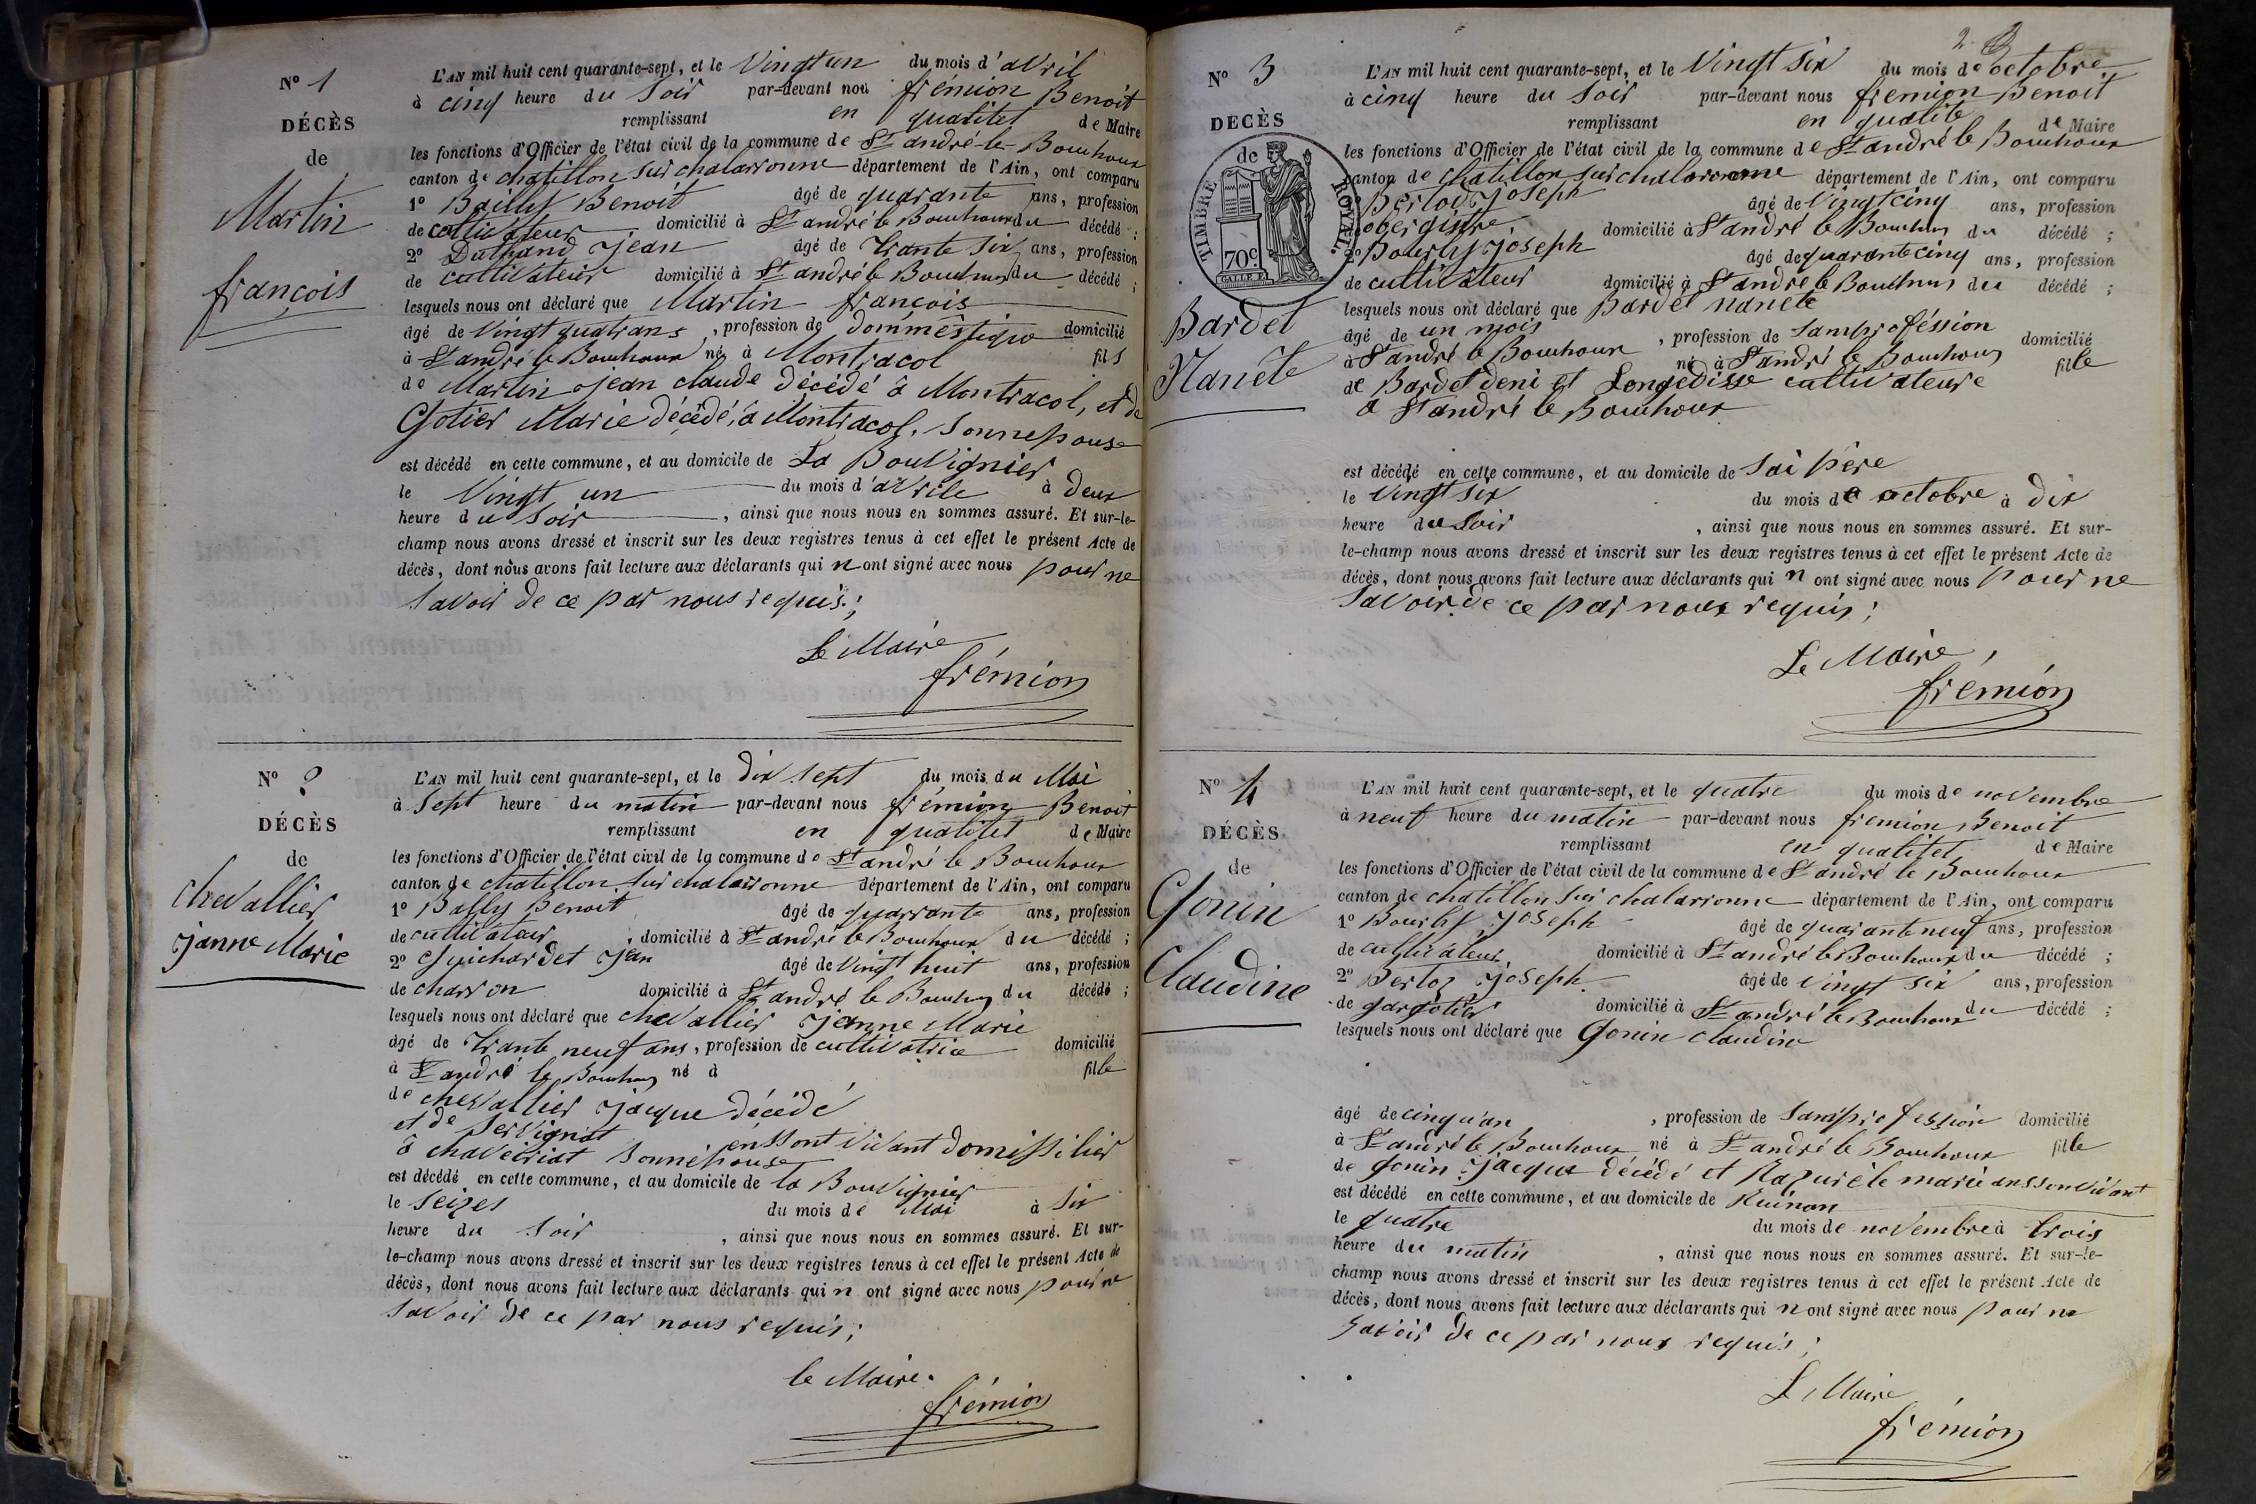 N° 1
DÉCÈS
de
Martin
françois
L'AN mil huit cent quarante-sept, et le Vingt un du mois d'aVril
à cinq heure du Soir par-devant nou frémion Benoit
remplissant en qualitet de Maire
les fonctions d'Officier de l'état civil de la commune de St andré-le-Bouchoux
canton de chatillon sur chalaronne département de l'Ain, ont comparu
1° Bailly Benoit âgé de quarante ans, profession
de cultivateur domicilié à St andré le Bouchoux du décédé ;
2° Jean âgé de trante six ans, profession
de cultivateur domicilié à St andré le Bouchoux du décédé ;
lesquels nous ont déclaré que Martin françois
âgé de Vingt quatrans, profession de domméstique domicilié
à St andré le Bouchoux né à Montracol fils
de Martin jean claude décédé à Montracol, et de
Gotier Marie décédé, à Montracol. Sonnepouse
est décédé en cette commune, et au domicile de La Bouvignier
le Vingt un du mois d'aVrile à deux
heure du Soir, ainsi que nous nous en sommes assuré. Et sur-le-
champ nous avons dressé et inscrit sur les deux registres tenus à cet effet le présent Acte de
décès, dont nous avons fait lecture aux déclarants qui n ont signé avec nous pour ne
Savoir de ce par nous requis ;
Le Maire
frémion
N° 2
DÉCÈS
de
cheVallier
janne Marie
L'AN mil huit cent quarante-sept, et le dix sept du mois du Mai
à Sept heure du matin par-devant nous frémion Benoit
remplissant en qualitet de Maire
les fonctions d'Officier de l'état civil de la commune de St andré le Bouchoux
canton de chatillon sur chalaronne département de l'Ain, ont comparu
1° Bally Benoit âgé de quarrante ans, profession
de cultivateur domicilié à St andré le Bouchoux du décédé ;
2° Guichardet jan âgé de Vingt huit ans, profession
de charron domicilié à St andré le Bouchoux du décédé ;
lesquels nous ont déclaré que cheVallier janne Marie
âgé de trante neuf ans, profession de cultivatrice domicilié
à St andré le Bouchoux né à fille
de cheVallier jacque décédé
et de Servignat
à chaveiriat Sonnépouse enssont vivant domissilier
est décédé en cette commune, et au domicile de la Bouvignier
le Seizes du mois de Mai à Six
heure du Soir, ainsi que nous nous en sommes assuré. Et sur-
le-champ nous avons dressé et inscrit sur les deux registres tenus à cet effet le présent Acte de
décès, dont nous avons fait lecture aux déclarants qui n ont signé avec nous pour ne
Savoir de ce par nous requis ;
le Maire.
frémion
2
N° 3
DECÈS
de
TIMBRE ROYAL.
70c.
Bardet
Nanete
L'AN mil huit cent quarante-sept, et le Vingt six du mois de octobre
à cinq heure du Soir par-devant nous frémion Benoit
remplissant en qualité de Maire
les fonctions d'Officier de l'état civil de la commune de St andré le Bouchoux
canton de chatillon sur chalaronne département de l'Ain, ont comparu
joseph âgé de Vingt cinq ans, profession
obergistre domicilié à St andré le Bouchoux du décédé ;
Bourly joseph âgé de quarante cinq ans, profession
de cultivateur domicilié à St andré le Bouchoux du décédé ;
lesquels nous ont déclaré que Bardet nanete
âgé de un mois, profession de Samproféssion domicilié
à St andré le Bouchoux né à St andré le Bouchoux fille
de Bardet deni et cultivateure
à St andré le Bouchoux
est décédé en cette commune, et au domicile de Sai père
le Vingt Six du mois de octobre à dix
heure du Soir, ainsi que nous nous en sommes assuré. Et sur-
le-champ nous avons dressé et inscrit sur les deux registres tenus à cet effet le présent Acte de
décès, dont nous avons fait lecture aux déclarants qui n ont signé avec nous Pour ne
Savoir de ce par nous requis ;
Le Maire,
frémion
N° 4
DÉCÈS
de
Gonin
Claudine
L'AN mil huit cent quarante-sept, et le quatre du mois de noVembre
à neuf heure du matin par-devant nous frémion Benoit
remplissant en qualitet de Maire
les fonctions d'Officier de l'état civil de la commune de St andré le Bouchoux
canton de chatillon sur chalaronne département de l'Ain, ont comparu
1° Bourly joseph âgé de quarante neuf ans, profession
de cultivateur, domicilié à St andré le Bouchoux du décédé ;
2° Bertoz joseph. âgé de vingt six ans, profession
de gargotier domicilié à St andré le Bouchoux du décédé ;
lesquels nous ont déclaré que Gonin claudine
âgé de cinq'an, profession de Sansprofession domicilié
à St andré le Bouchoux né à St andré le Bouchoux fille
de Gonin jacque décédé et marie anssonvivant
est décédé en cette commune, et au domicile de
le quatre du mois de noVembre à trois
heure du matin, ainsi que nous nous en sommes assuré. Et sur-le-
champ nous avons dressé et inscrit sur les deux registres tenus à cet effet le présent Acte de
décès, dont nous avons fait lecture aux déclarants qui n ont signé avec nous pour ne
Savoir de ce par nous requis ;
Le Maire
frémion